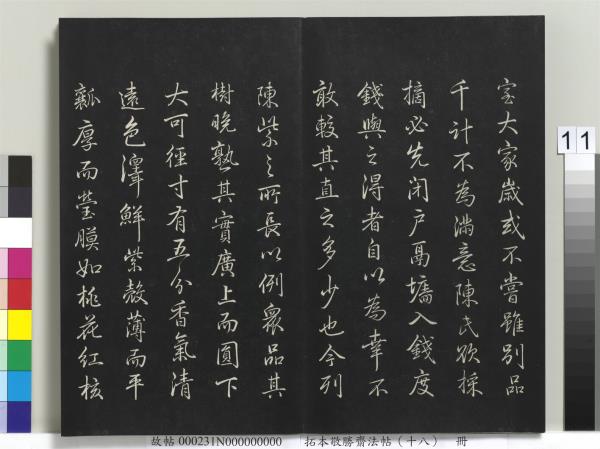 室大家歲或不嘗雖別品
千計不為滿意陳氏欲採
摘必先閉戶鬲墻入錢度
錢與之得者自以為幸不
敢較其直之多少也今列
陳紫之所長以例衆品其
樹晚熟其實廣上而圓下
大可徑寸有五分香氣清
遠色澤鮮紫殼薄而平
瓤厚而瑩膜如桃花紅核
11
故帖 000231N000000000 拓本敬勝齋法帖（十八） 冊